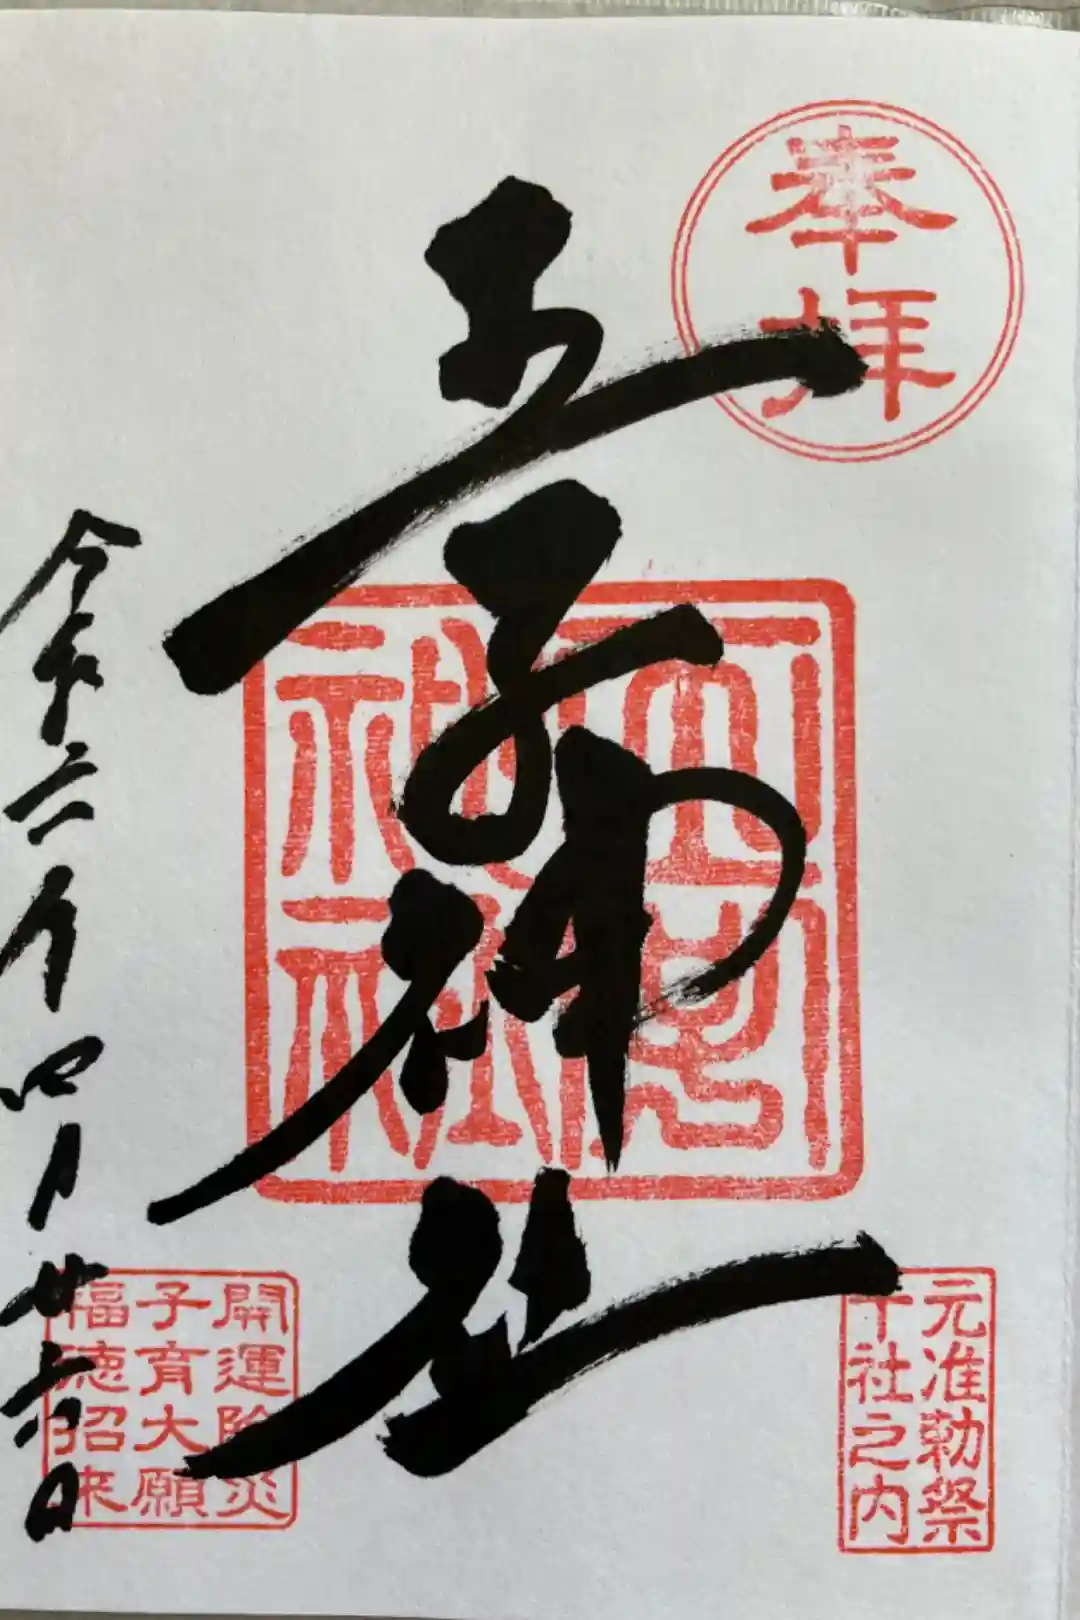 奉拝
王子神社
令和六年四月廿六日
元准勅祭
十社之内
開運除災
子育大願
福徳招来